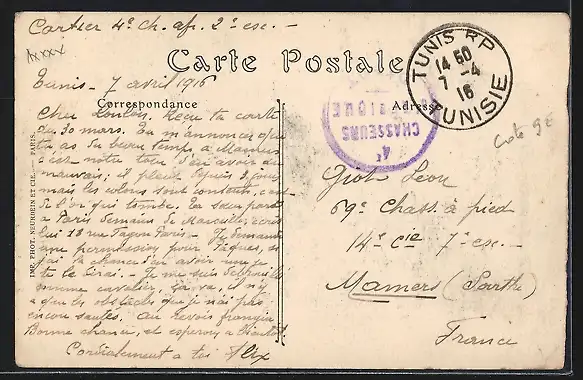 Cartier 4e Ch. af. 2e esc. -
xxxxx
Carte Postale
Tunis - 7 avril 1916
Correspondance
Adresse
TUNIS R.P
14 50
7 -4
16
TUNISIE
4e
CHASSEURS
Cher Recu ta carte
du 30 mars. Tu m'annonces que
tu as du beau temps à Mamers
c'est notre tour d'en avoir du
mauvais; il pleut depuis 3 jours
mais les colons sont contents, c'est
de l'or qui tombe. La soeur part
à Paris demain de Marseille, écris
lui 18 rue Paris - Je demande
une permission pour Pâques, si
j'ai la chance d'en avoir une je
te le dirai. - Je me suis débrouillé
comme cavalier, ça va, il n'y
a que les obstacles que je n'ai pas
encore sautés. Au revoir frangin
Bonne chance, et espérons à bientôt
Cordialement à toi Alix
IMP. PHOT. NEURDEIN ET CIE. - PARIS.
Giot Léon
69e Chass. à pied
14e Cie 7e esc. -
Mamers (Sarthe)
France